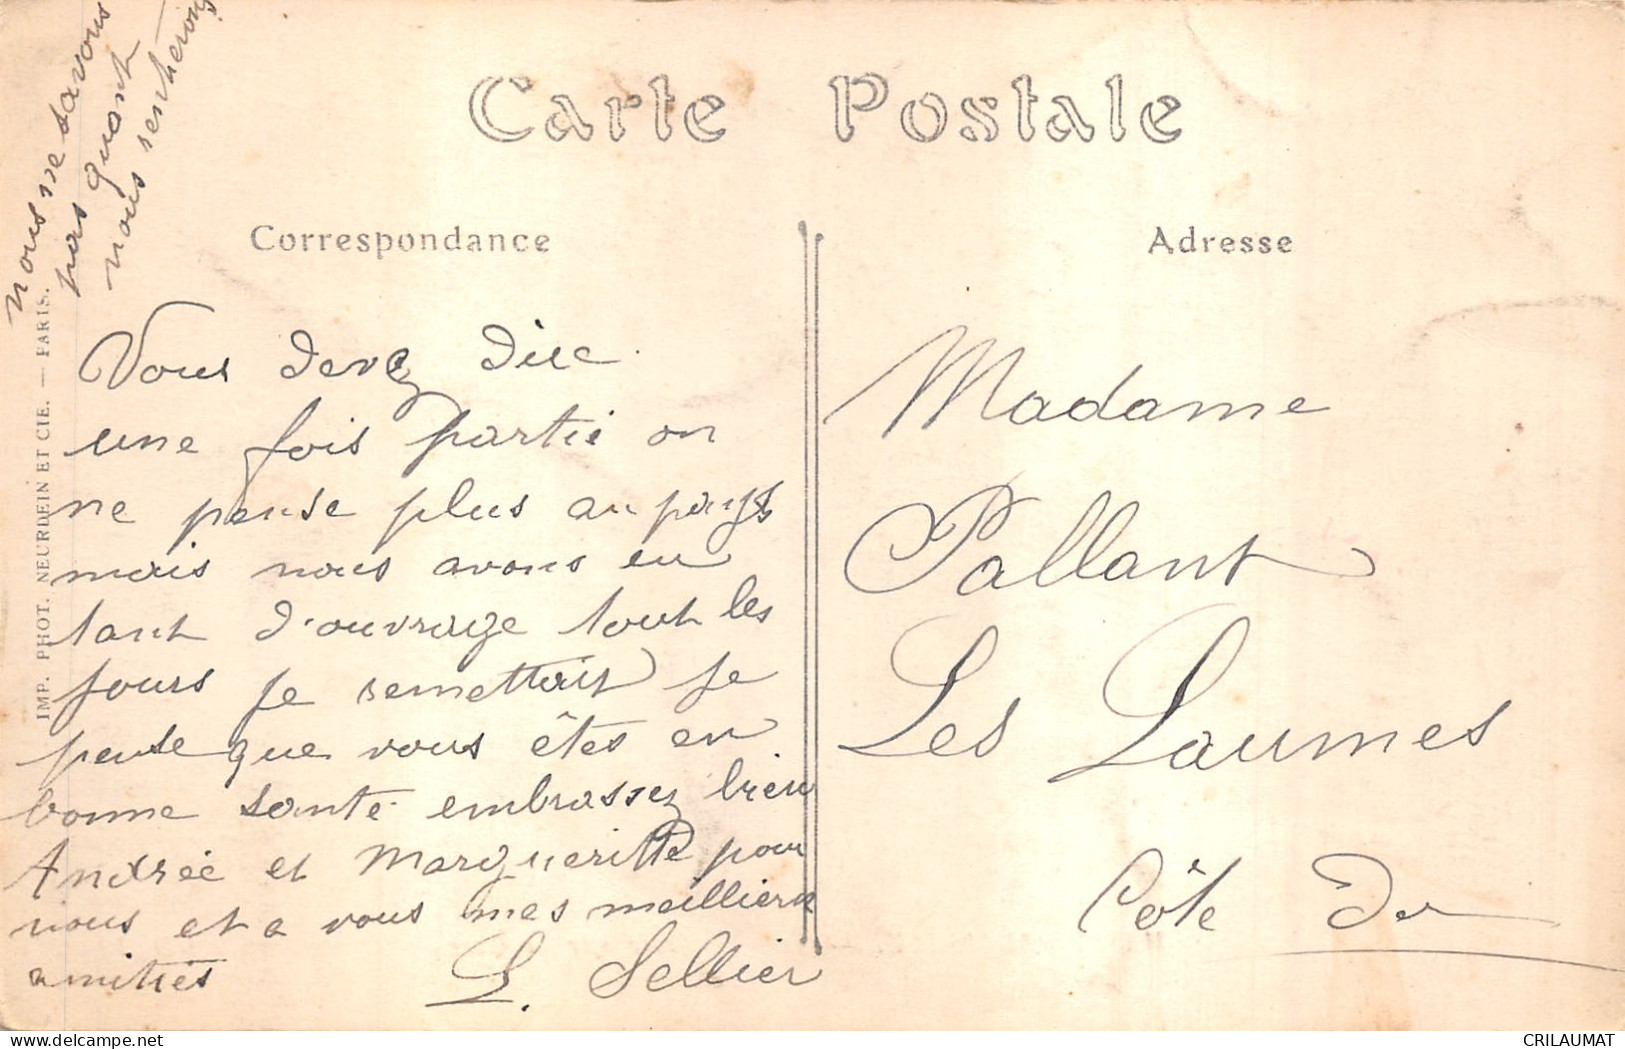 Carte Postale
Correspondance
Adresse
nous ne savous
pas quant
nous senherons
IMP. PHOT. NEURDEIN ET CIE. — PARIS.
Vous devez dire
une fois partie on
ne pense plus au pays
mais nous avons eu
tant d'ouvrage tout les
jours je remettais je
pense que vous êtes en
bonne santé embrassez bien
Andrée et Margueritte pour
nous et a vous mes meilliere
amitiés
L. Sellier
Madame
Pallant
Les Laumes
Côte d'or
delcampe.net
CRILAUMAT